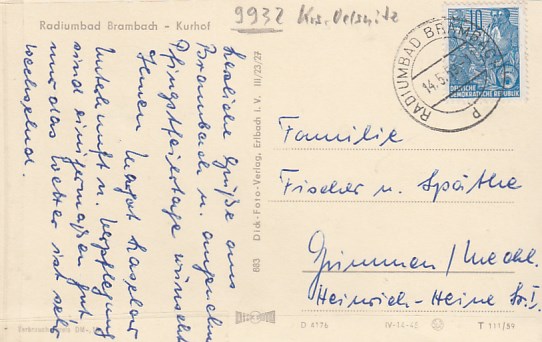 Radiumbad Brambach - Kurhof
9932 Krs. Oelsnitz
RADIUMBAD BRAMBACH
14.5.
10
DEUTSCHE
DEMOKRATISCHE REPUBLIK
Herzliche Grüße aus
Brambach u. angenehme
Pfingstfeiertage wünscht
Ihnen
Unterkunft u. Verpflegung
sind einigermaßen gut
nur das Wetter ist sehr
wechselnd.
883 Dick-Foto-Verlag, Erlbach i.V. III/23/27
Familie
Fischer u. Späthe
Grimmen/Meckl.
Heinrich-Heine Str.
D 4176
IV-14-45
T 111/59